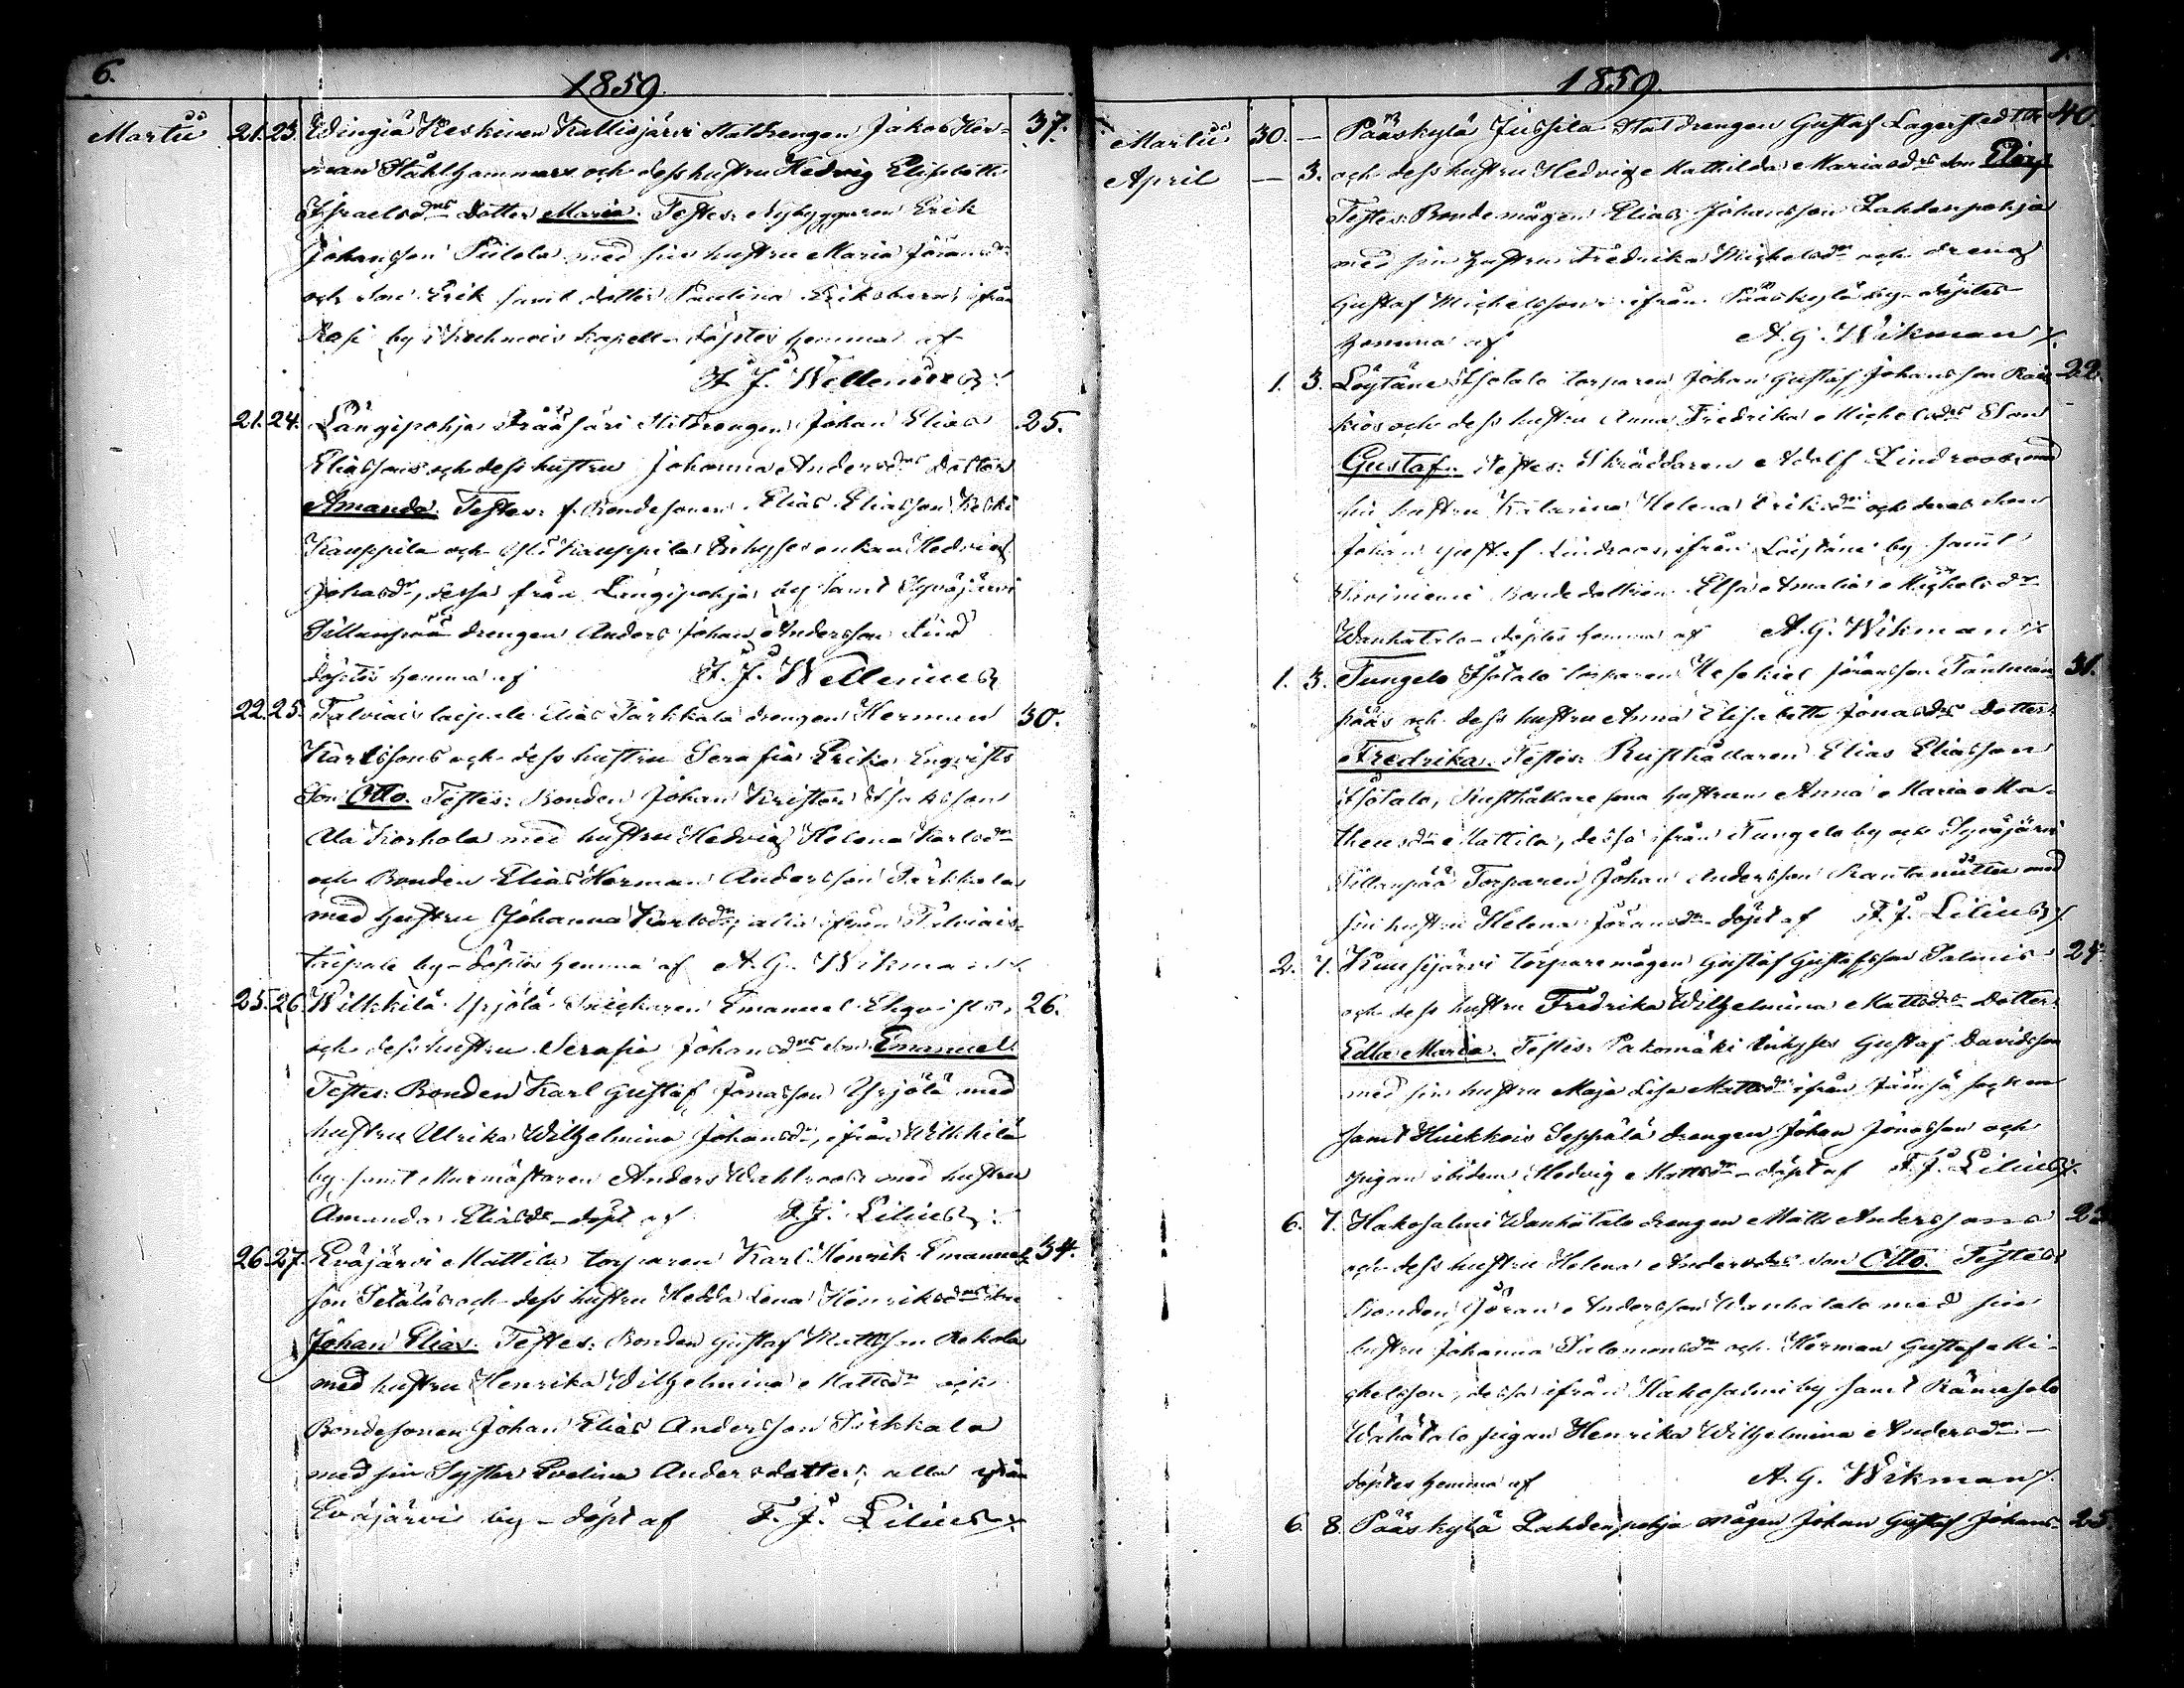 6.
1859.
Martii 21. 23. Edingiä Keskinen Kallisjärvi Statdrengen Jakob Her- 37.
man Stålhammars och dess hustru Hedvig Elisabeth
Israelsdrs Dotter Maria. Testes: Nybyggaren Erik
Johansson Piilola med sin hustru Maria Göransdr
och Son Erik samt dotter Paulina Eriksbarn, ifrån
by i Kuhmois kapell - döptes hemma af
F. J. Wellenius
21. 24. Längipohja Srääsäri Statdrengen Johan Elias 25.
Eliassons och dess hustru Johanna Andersdrs Dotter
Amanda. Testes: f. Bondesonen Elias Eliasson Keski
Kauppila och Yli Kauppila Inhyses enkan Hedvig
Johansdr, dessa från Längipohja by samt Syväjärvi
Sillanpää drengen Anders Johan Andersson Lind
döptes hemma af F. J. Wellenius
22. 25. Talviais laipale Elias Pärkkälä drengen Herman 30.
Karlssons och dess hustru Serafia Erika Enqvists
Son Otto. Testes: Bonden Johan Krister Isaksson
Ala Korhola med hustru Hedvig Helena Karlsdr
och Bonden Elias Herman Andersson Pärkkälä
med hustru Johanna Karlsdr, alla ifrån Talviais-
taipale by - döptes hemma af A. G. Wikman
25. 26. Wilkkilä Yrjölä Snickaren Emanuel Ekqvists 26.
och dess hustru Serafia Johansdrs Son Emanuel.
Testes: Bonden Karl Gustaf Jonasson Yrjölä med
hustru Ulrika Wilhelmina Johansdr, ifrån Wilkkilä
by samt Murmästaren Anders Wahlroos med hustru
Amanda Eliasdr - döpt af F. J. Lilius
26. 27. Eväjärvi Mattila torparen Karl Henrik Emanuels- 34.
son Setäläs och dess hustru Hedda Lena Henriksdrs Son
Johan Elias. Testes: Bonden Gustaf Mattsson Rekola
med hustru Henrika Wilhelmina Mattsdr och
Bondesonen Johan Elias Andersson Pirkkala
med sin Syster Evelina Andersdotter, alla ifrån
Eväjärvi by - döpt af F. J. Lilius
1859.
Martii 30. — Pääskylä Jussila Statdrengen Gustaf Lagerstedts 40.
April — 3. och dess hustru Hedvig Mathilda Mariasdrs Son Elias
Testes: Bondemågen Elias Johansson Lahdenpohja
med sin hustru Fredrika Michelsdr och dreng
Gustaf Michelsson ifrån Pääskylä by - döptes
hemma af A. G. Wikman
1. 3. Löytäne Isotalo torparen Johan Gustaf Johansson 22.
och dess hustru Anna Fredrika Michelsdrs Son
Gustaf. Testes: Skräddaren Adolf Lindroos, med
sin hustru Katarina Helena Eriksdr och deras Son
Johan Gustaf Lindroos, ifrån Löytäne by samt
Niviniemi Bondedottren Elsa Amalia Michelsdr
Wanhatalo - döptes hemma af A. G. Wikman
1. 3. Tungelo Isotalo torparen Hesekiel Göransson 31.
pääs och dess hustru Anna Elisabeth Jonasdrs Dotter
Fredrika. Testes: Rusthållaren Elias Eliasson
Isotalo, Rusthållaresons hustrun Anna Maria Ma-
theusdr Mattila, dessa ifrån Tungelo by och Syväjärvi
Sillanpää Torparen Johan Andersson Rautaniittu med
sin hustru Helena Göransdr - döpt af F. J. Lilius
2. 7. Kuusijärvi torparemågen Gustaf Gustafsson Salmis 24.
och dess hustru Fredrika Wilhelmina Mattsdrs Dotter
Edla Maria. Testes: Pakomäki Inhyses Gustaf Davidsson
med sin hustru Maja Lisa Mattsdr ifrån Jämsä socken
samt Hiukkois Seppälä drengen Johan Jonasson och
pigan ibidem Hedvig Mattsdr - döpt af F. J. Lilius
6. 7. Hakosalmi Wanhatalo drengen Matts Anderssons
och dess hustru Helena Andersdrs Son Otto. Testes
Bonden Göran Andersson Wanhatalo med sin
hustru Johanna Salomonsdr och Herman Gustaf Mi-
chelsson, dessa ifrån Hakosalmi by samt Rämesalo
Wähätalo pigan Henrika Wilhelmina Andersdr -
döptes hemma af A. G. Wikman
6. 8. Pääskylä Lahdenpohja mågen Johan Gustaf Johans- 25.